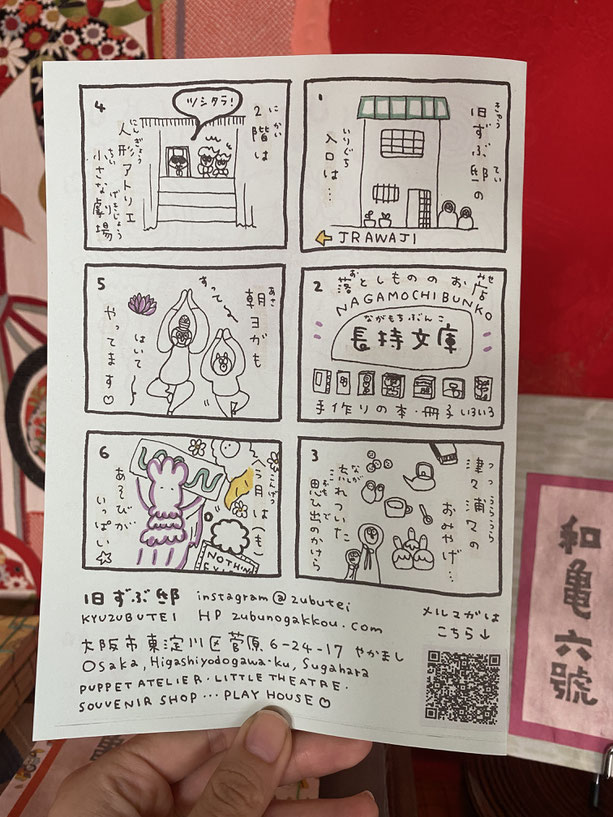 1
旧ずぶ邸の
きゅう
てい
入口は…
いりぐち
JRAWAJI
2
落としもののお店
お
みせ
NAGAMOCHIBUNKO
ながもちぶんこ
長持文庫
手作りの本・冊子いろいろ
3
津々浦々の
つつうらうら
おみやげ…
流れついた
なが
思い出のかけら
おも
で
4
ツシタラ!
2階は
にかい
人形アトリエ
にんぎょう
小さな劇場
ちい
げきじょう
5
朝ヨガも
あさ
すって〜
はいて〜
やってます♡
6
今月は(も)
こんげつ
あそびが
いっぱい☆
NOTHIN
旧ずぶ邸
instagram@zubutei
KYUZUBUTEI HP zubunogakkou.com
メルマガは
こちら↓
大阪市東淀川区菅原6-24-17 やかまし
Osaka, Higashiyodogawa-ku, Sugahara
PUPPET ATELIER・LITTLE THEATRE・
SOUVENIR SHOP…PLAY HOUSE♡
和亀六號